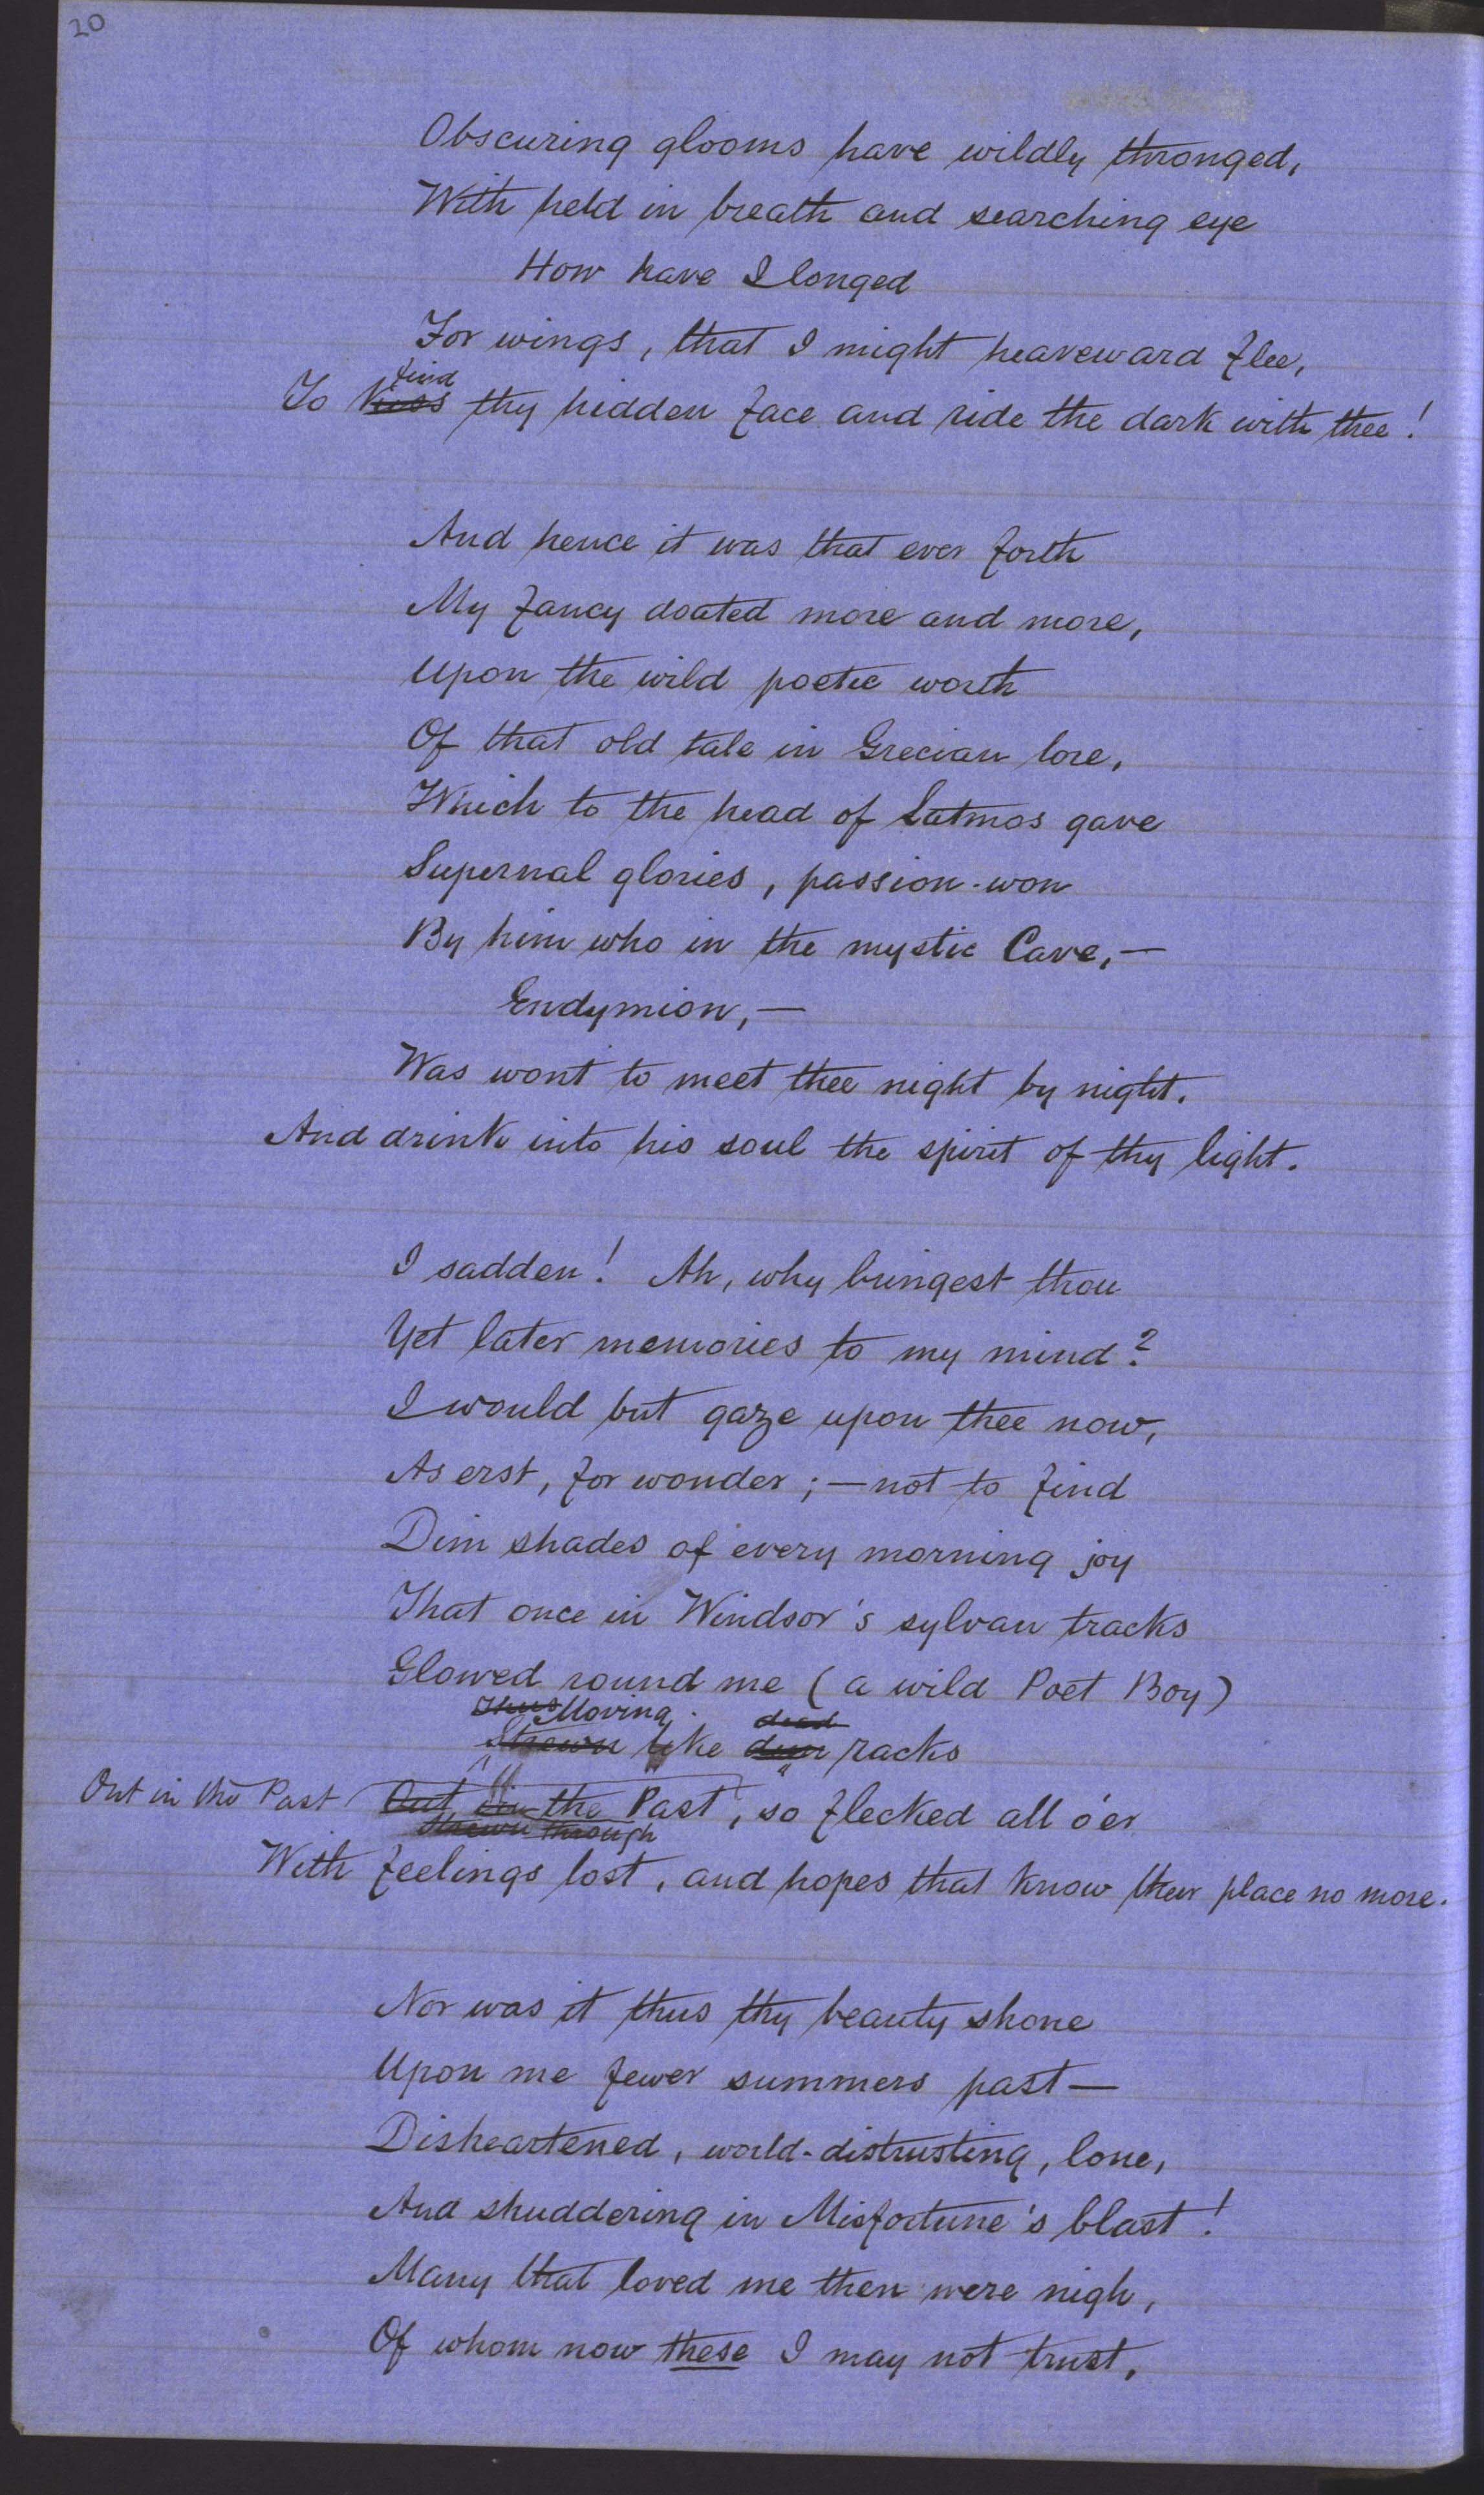 20
Obscuring glooms have wildly thronged,
With held in breath and searching eye
How have I longed
For wings, that I might heaveward flee,
find
To kiss thy hidden face and ride the dark with thee!
And hence it was that ever forth
My fancy doated more and more,
Upon the wild poetic worth
Of that old tale in Grecian lore,
Which to the head of Latmos gave
Supernal glories, passion-won
By him who in the mystic Cave,—
Endymion,—
Was wont to meet thee night by night.
And drink into his soul the spirit of thy light.
I sadden! Ah, why bringest thou
Yet later memories to my mind?
I would but gaze upon thee now,
As erst, for wonder;—not to find
Dim shades of every morning joy
That once in Windsor's sylvan tracks
Glowed round me (a wild Poet Boy)
Thus Moving dead
Strewn like dun racks
Out in the Past Out in the Past, so flecked all o'er
Strewn through
With feelings lost, and hopes that know their place no more.
Nor was it thus thy beauty shone
Upon me fewer summers past—
Disheartened, world-distrusting, lone,
And shuddering in Misfortune's blast!
Many that loved me then were nigh,
Of whom now these I may not trust,